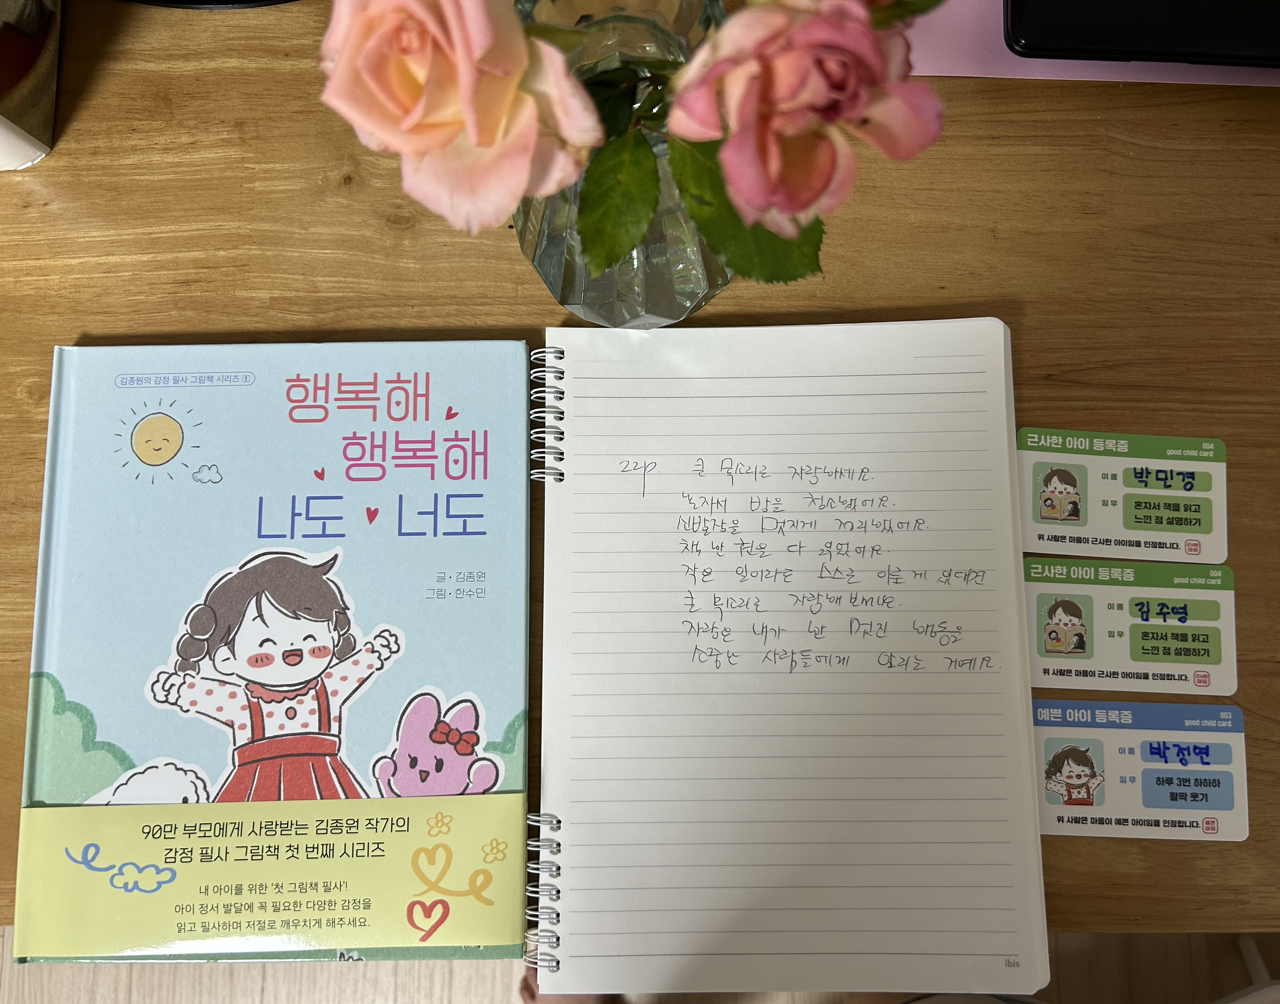 김종원의 감정 필사 그림책 시리즈 1
행복해
행복해
나도 너도
글·김종원
그림·한수민
90만 부모에게 사랑받는 김종원 작가의
감정 필사 그림책 첫 번째 시리즈
내 아이를 위한 '첫 그림책 필사'!
아이 정서 발달에 꼭 필요한 다양한 감정을
읽고 필사하며 저절로 깨우치게 해주세요.
22p. 큰 목소리로 자랑하세요.
혼자서 방을 청소했어요.
신발장을 멋지게 정리했어요.
책 한 권을 다 읽었어요.
작은 일이라도 스스로 이룬 게 있다면
큰 목소리로 자랑해 보세요.
자랑은 내가 한 멋진 행동을
소중한 사람들에게 알리는 거예요.
ibis
근사한 아이 등록증
004
good child card
이름 박민경
임무 혼자서 책을 읽고
느낀 점 설명하기
위 사람은 마음이 근사한 아이임을 인정합니다.
근사한 아이 등록증
004
good child card
이름 김주영
임무 혼자서 책을 읽고
느낀 점 설명하기
위 사람은 마음이 근사한 아이임을 인정합니다.
예쁜 아이 등록증
003
good child card
이름 박정연
임무 하루 3번 하하하
활짝 웃기
위 사람은 마음이 예쁜 아이임을 인정합니다.